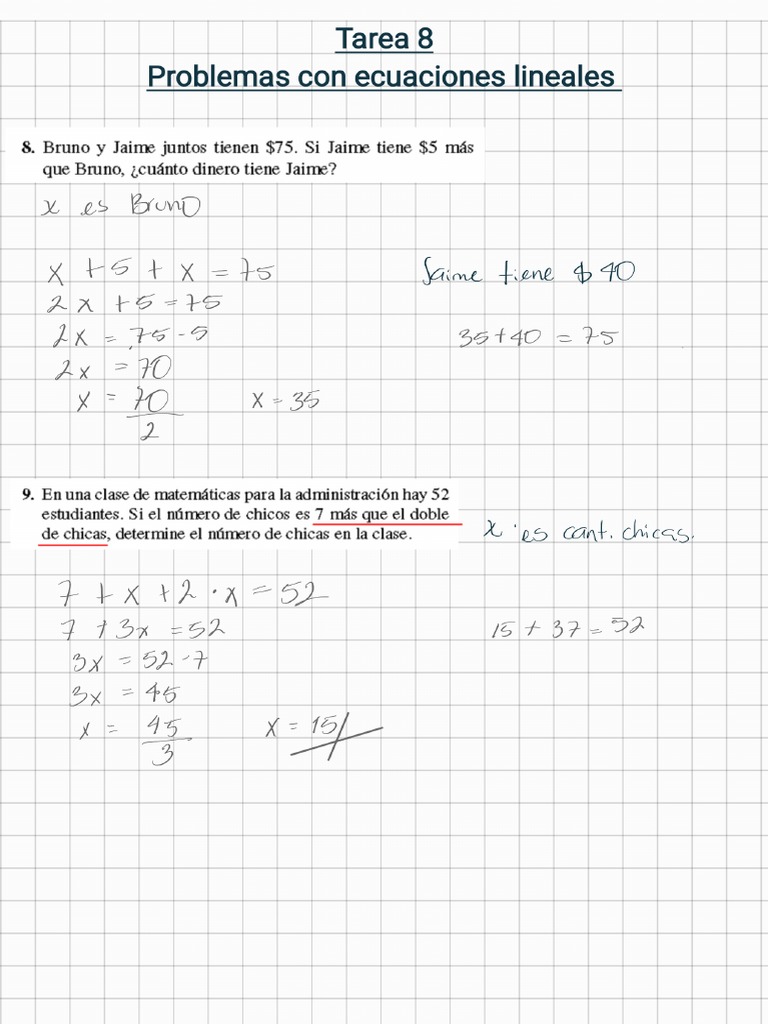 Tarea 8
Problemas con ecuaciones lineales
8. Bruno y Jaime juntos tienen $75. Si Jaime tiene $5 más
que Bruno, ¿cuánto dinero tiene Jaime?
x es Bruno
x + 5 + x = 75
Jaime tiene $ 40
2x + 5 = 75
2x = 75 - 5
35 + 40 = 75
2x = 70
x = 70
x = 35
2
9. En una clase de matemáticas para la administración hay 52
estudiantes. Si el número de chicos es 7 más que el doble
de chicas, determine el número de chicas en la clase.
x es cant. chicas.
7 + x + 2 · x = 52
7 + 3x = 52
15 + 37 = 52
3x = 52 - 7
3x = 45
x = 45
x = 15
3